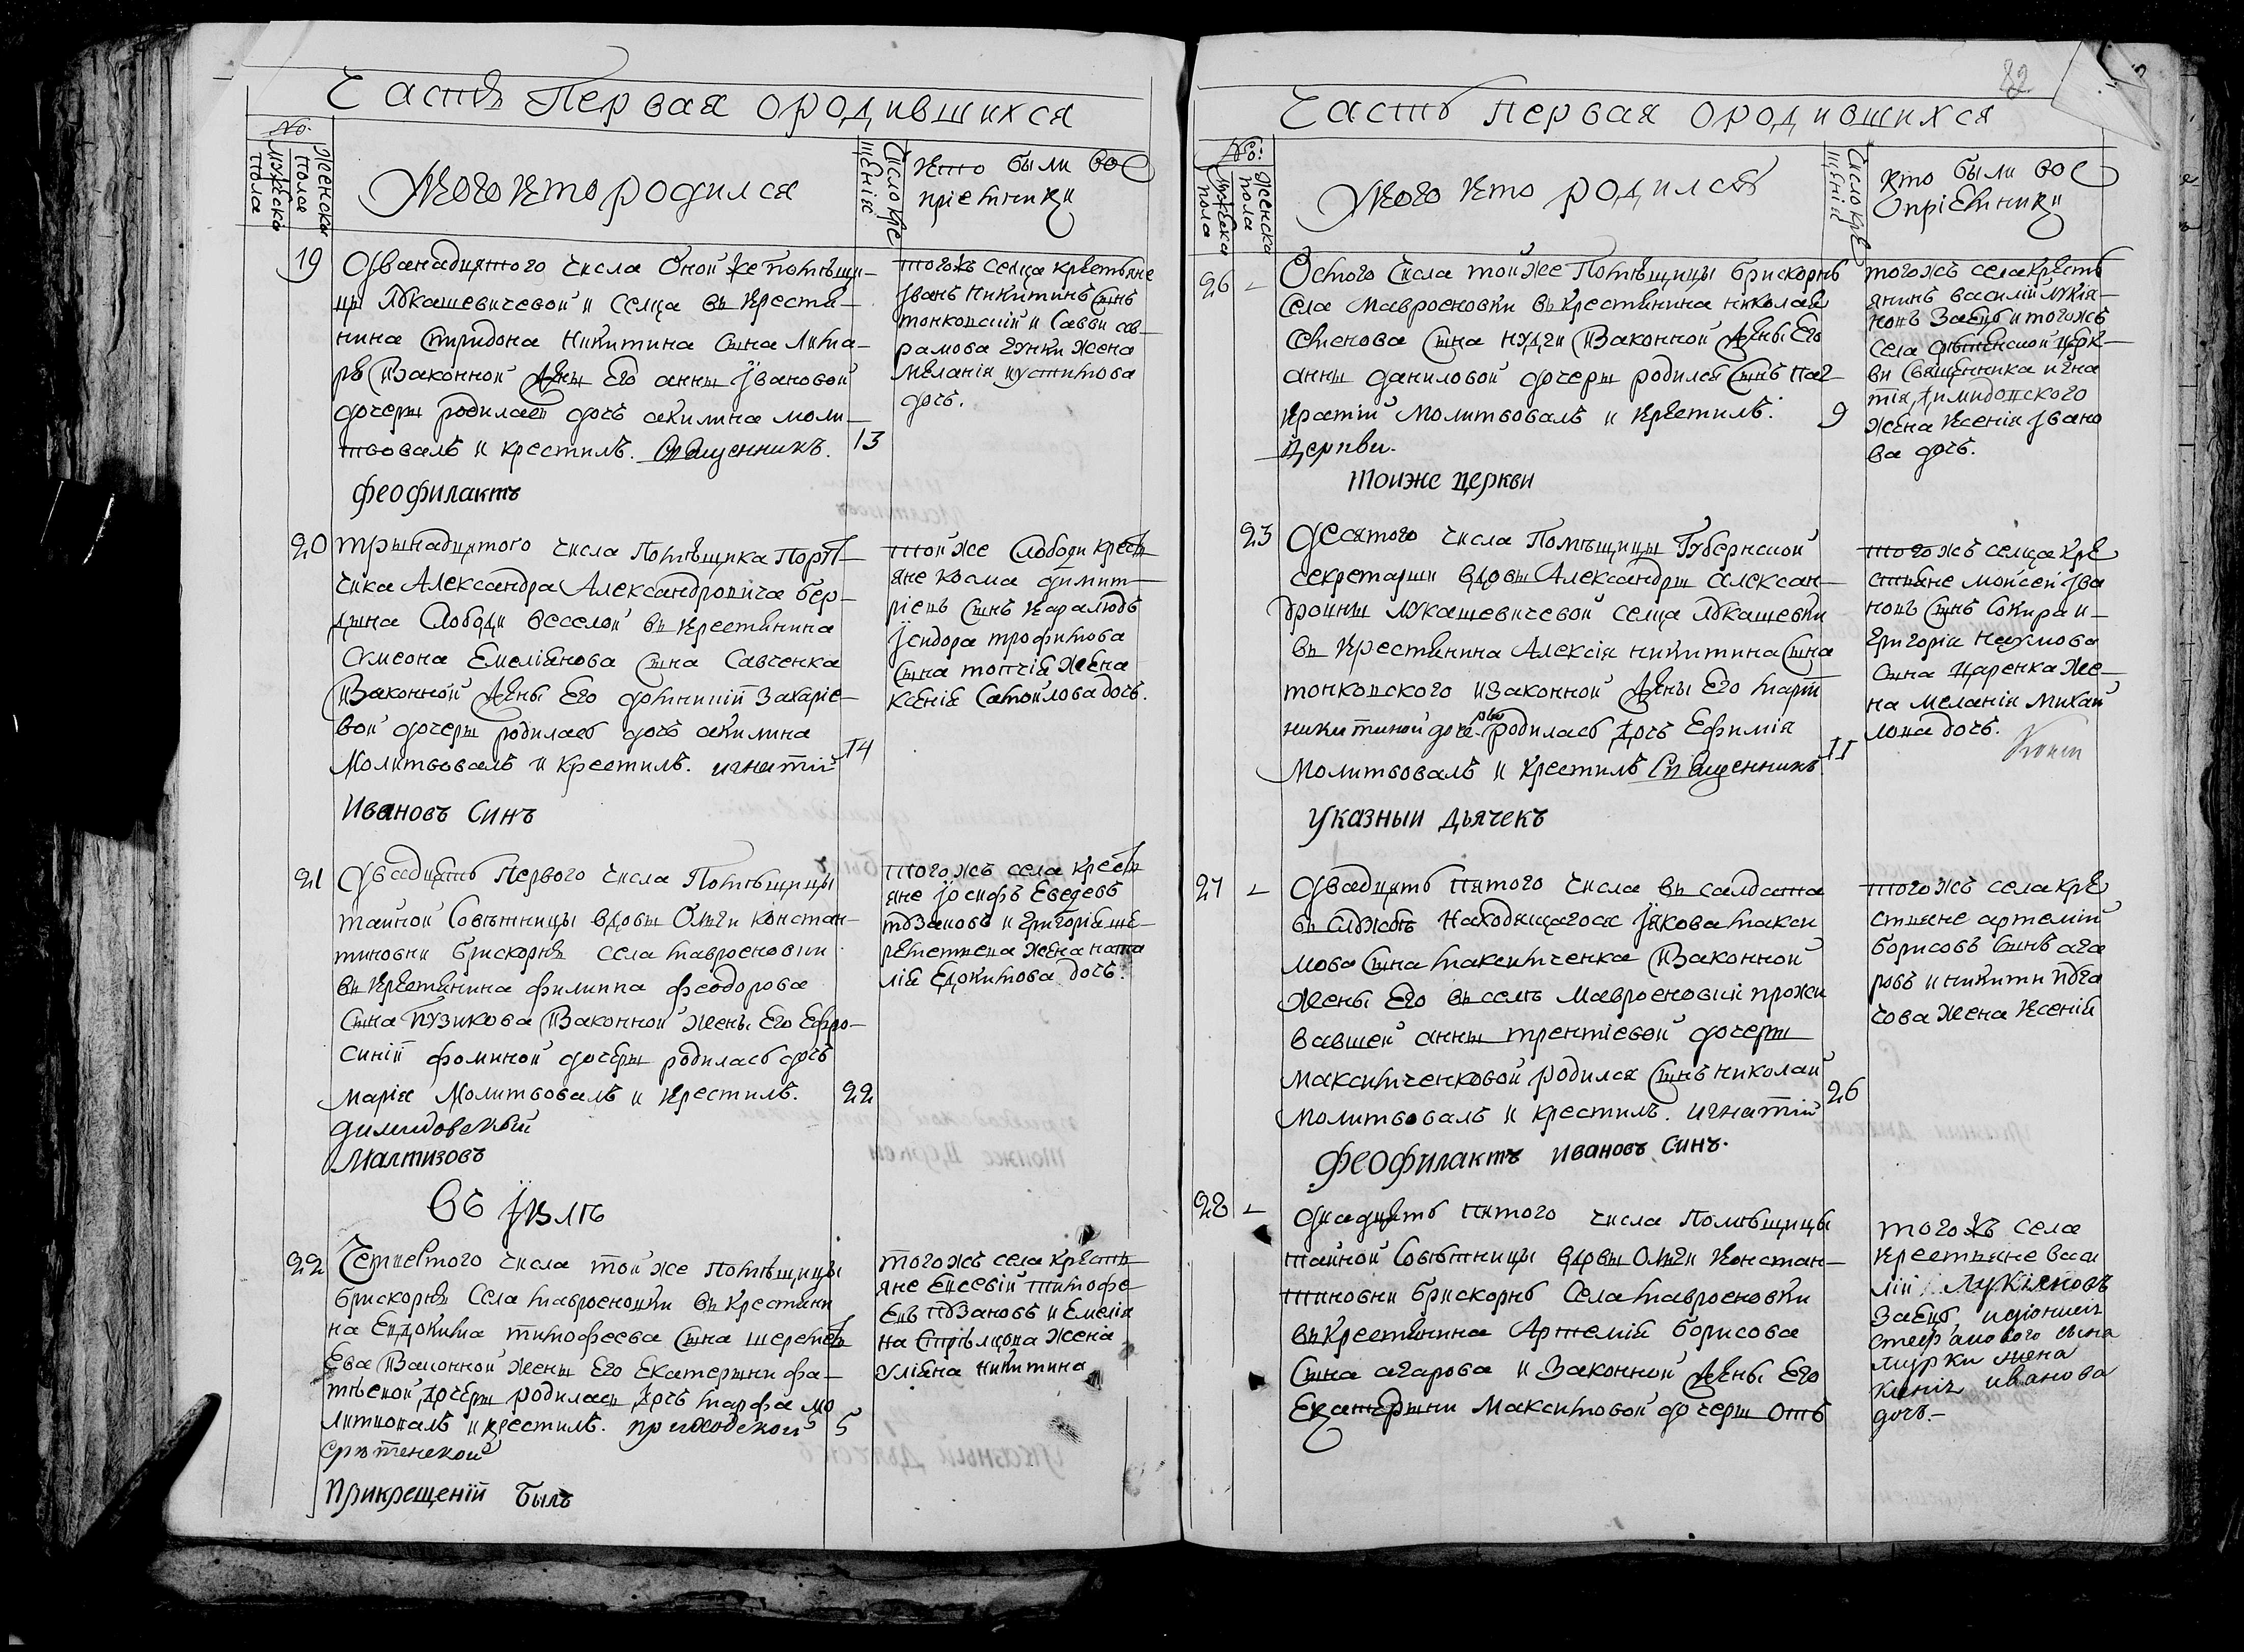 Часть Первая ородившихся
No.
Мужеска пола
Женска пола
Укого кто родился
Число кре
щенія
кто были вос
пріемники
19
Дванадцятого числа Оной же помѣщи-
цы Лукашевичевой и селца въ крестя-
нина Спиридона Никитина сына
и законной жены Его анны Івановой
дочеры родилась дочъ акилина моли-
твовалъ и крестилъ. Священникъ.
13
Феофилактъ
тогожъ селца крестьяне
Іванъ Никитинъ сынъ
тонконский и Саввы ав-
рамова жена
Меланія устимова
дочъ.
20
Трынадцятого числа Помѣщика Пору-
чика Александра Александровича бер-
Слободи веселой въ крестянина
Сумеона Емеліянова сына Савченка
и законной жены Его домникіи Захаріе-
вой дочеры родилась дочъ акилина
Молитвовалъ и крестилъ. игнатій
14
Ивановъ Синъ
той же Слободи кресть
яне косма димит-
ріевъ сынъ каралюдъ
Ісидора трофимова
сына топчія жена
Ксенія Самойлова дочъ.
21
Двадцять Первого числа Помѣщицы
тайной Совѣтницы вдовы Олги констан-
тиновны брискорнъ села мавроеновки
въ крестянина филиппа феодорова
Сына Пузикова и законной жены Его Ефро-
синіи фоминой дочеры родилась дочъ
Марія Молитвовалъ и крестилъ.
22
димидовскый
Малтизовъ
тогожъ села кресть
яне Іосифъ
пузановъ и григорія ше-
реметева жена ната
лія Евдокимова дочъ.
Въ Іюлѣ
22
Четвертого числа той же помѣщицы
брискорнъ Села мавроеновки въ крестяни
на Евдокима тимофеева сына шереметь
ева и законной жены Его Екатерыни фа-
дочеры родилась дочъ марфа мо
литвовалъ и крестилъ. приходской
5
срѣтенской
Прикрещеній былъ
тогожъ села кресть
яне Евсевій тимофе
евъ пузановъ и Емелія
на стрѣлцова жена
уліяна никитина
82
Часть первая ородившихся
No:
Мужеска пола
Женска пола
Укого кто родился
Число кре
щенія
кто были вос
пріемники
26
Осмого числа тойже Помѣщицы брискорнъ
села мавроеновки въ крестянина николая
семенова сына нудги и законной жены Его
анны даниловой дочеры родился сынъ пан-
кратій молитвовалъ и крестилъ.
9
Церкви.
тоиже церкви
тогожъ села кресть
янинъ василій лукія-
новъ Заецъ и тогожъ
села срѣтенской церк-
ви священника игна
тія димидовского
жена Ксенія Івано
ва дочъ.
23
Десятого числа Помѣщицы Губернской
секретарши вдовы Александры алексан-
дровны Лукашевичевой селца лукашевки
въ крестянина Алексія никитина сына
тонконского и законной жены Его
никитиной дочеры родилась дочъ Ефимія
молитвовалъ и крестилъ Священникъ.
11
указный дьячекъ
тогожъ селца кре
стьяне мойсей іва
новъ сынъ сокира и
григорія наумова
сына Царенка же-
на меланія михай
лова дочъ.
27
Двадцять пятого числа въ салдата
въ службѣ находящагося Іякова макси
мова сына максимченка и законной
жены Его въ селѣ мавроеновки прожи
вавшей анны терентіевой дочеры
максимченковой родился сынъ николай
молитвовалъ и крестилъ. игнатій
26
Феофилактъ ивановъ синъ.
тогожъ села кре
стьяне артемій
борисовъ сынъ ага
ровъ и никиты
жена Ксенія
28
Двадцять пятого числа Помѣщицы
тайной Совѣтницы вдовы Олги констан-
тиновны брискорнъ села мавроеновки
въ крестянина Артемія борисова
Сына агарова и законной жены Его
Екатерыни максимовой дочеры отъ
тогожъ села
крестьяне васи
лій Лукіяновъ
Заецъ
стефанового сына
мурки жена
ксенія иванова
дочъ.-